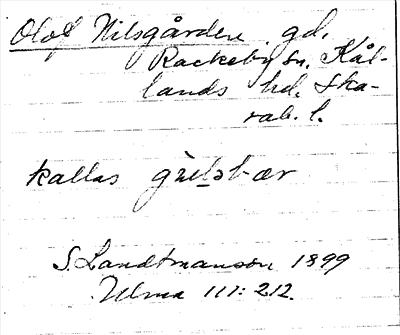 Olof Nilsgården gd.
Rackeby sn. Kål-
lands hd. Ska-
rab. l.
kallas
S. Landtmanson 1899
Ulma 111: 212.